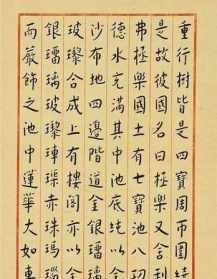 重行樹皆是四寶周帀圍繞
是故彼國名曰極樂又舍利
弗極樂國土有七寶池八功
德水充滿其中池底純以
沙布地四邊階道金銀瑠璃
玻瓈合成上有樓閣亦以金
銀瑠璃玻瓈硨磲赤珠瑪瑙
而嚴飾之池中蓮華大如車